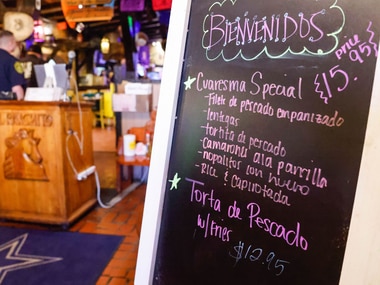 BIENVENIDOS
price
15.95
Cuaresma Special
- Filete de pescado empanizado
- lentejas
- tortita de pescado
- camarones a la parrilla
- nopalitos con huevo
- Rice & Capirotada
Torta de Pescado
w/ Fries
$12.95